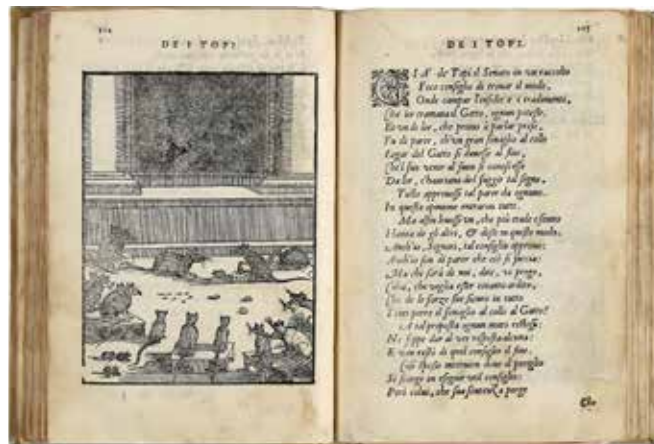 DE I TOPI.
DE I TOPI.
GIA' de' Topi il Senato in un raccolto
Fece consiglio di trovar il modo,
Onde campar l'insidie e i tradimenti,
Che lor tramava il Gatto, ognun
Et un di lor, che primo à parlar prese,
Fu di parer, ch'un gran sonaglio al collo
Legar del Gatto si dovesse al fine,
Che'l suo venir al suon si conoscesse
Da lor,
Tosto approvossi tal parer da ognuno.
In questa opinione entraron tutti.
Ma alfin levossi un, che più etade e senno
Havea de gli altri, & disse in questo modo.
Anch'io, Signori, tal consiglio approvo:
Anch'io son di parer che ciò si faccia:
Ma chi sarà di noi, dite, vi prego,
Colui, che voglia esser cotanto ardito,
Che de le forze sue sicuro in tutto
I sonaglio al collo al Gatto?
A tal proposta ognun muto restossi:
Ne seppe dar al ver risposta alcuna:
E van restò di quel consiglio il fine.
Così spesso interviene dove il periglio
Si scorge in eseguir util consiglio:
Però colui, che sua sentenza porge